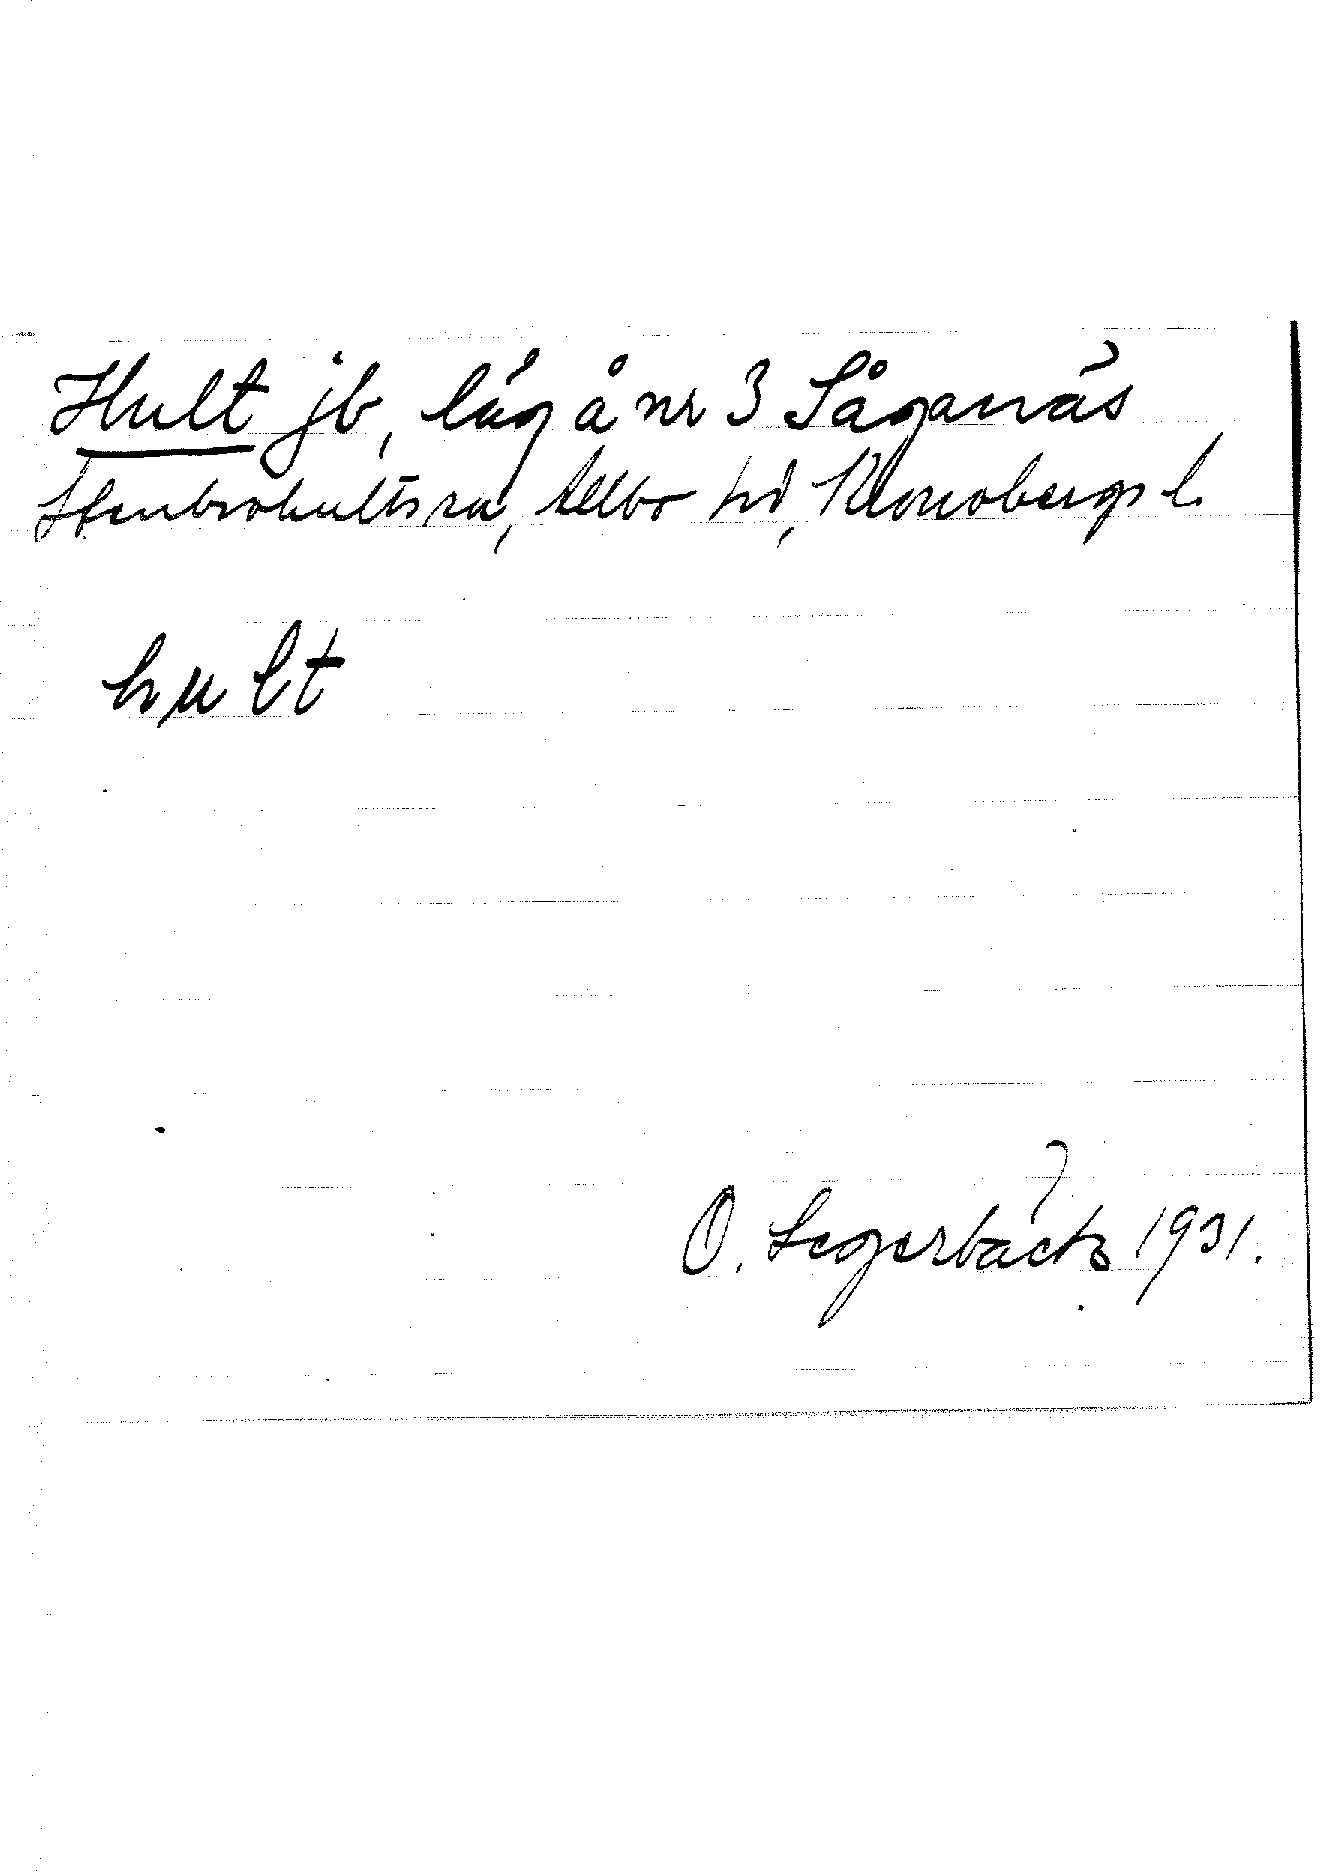 Hult jb, låg å nr 3 Såganäs
Stenbrohults sn, Allbo hd, Kronobergs l.
hult
O. Segerbäck 1931.